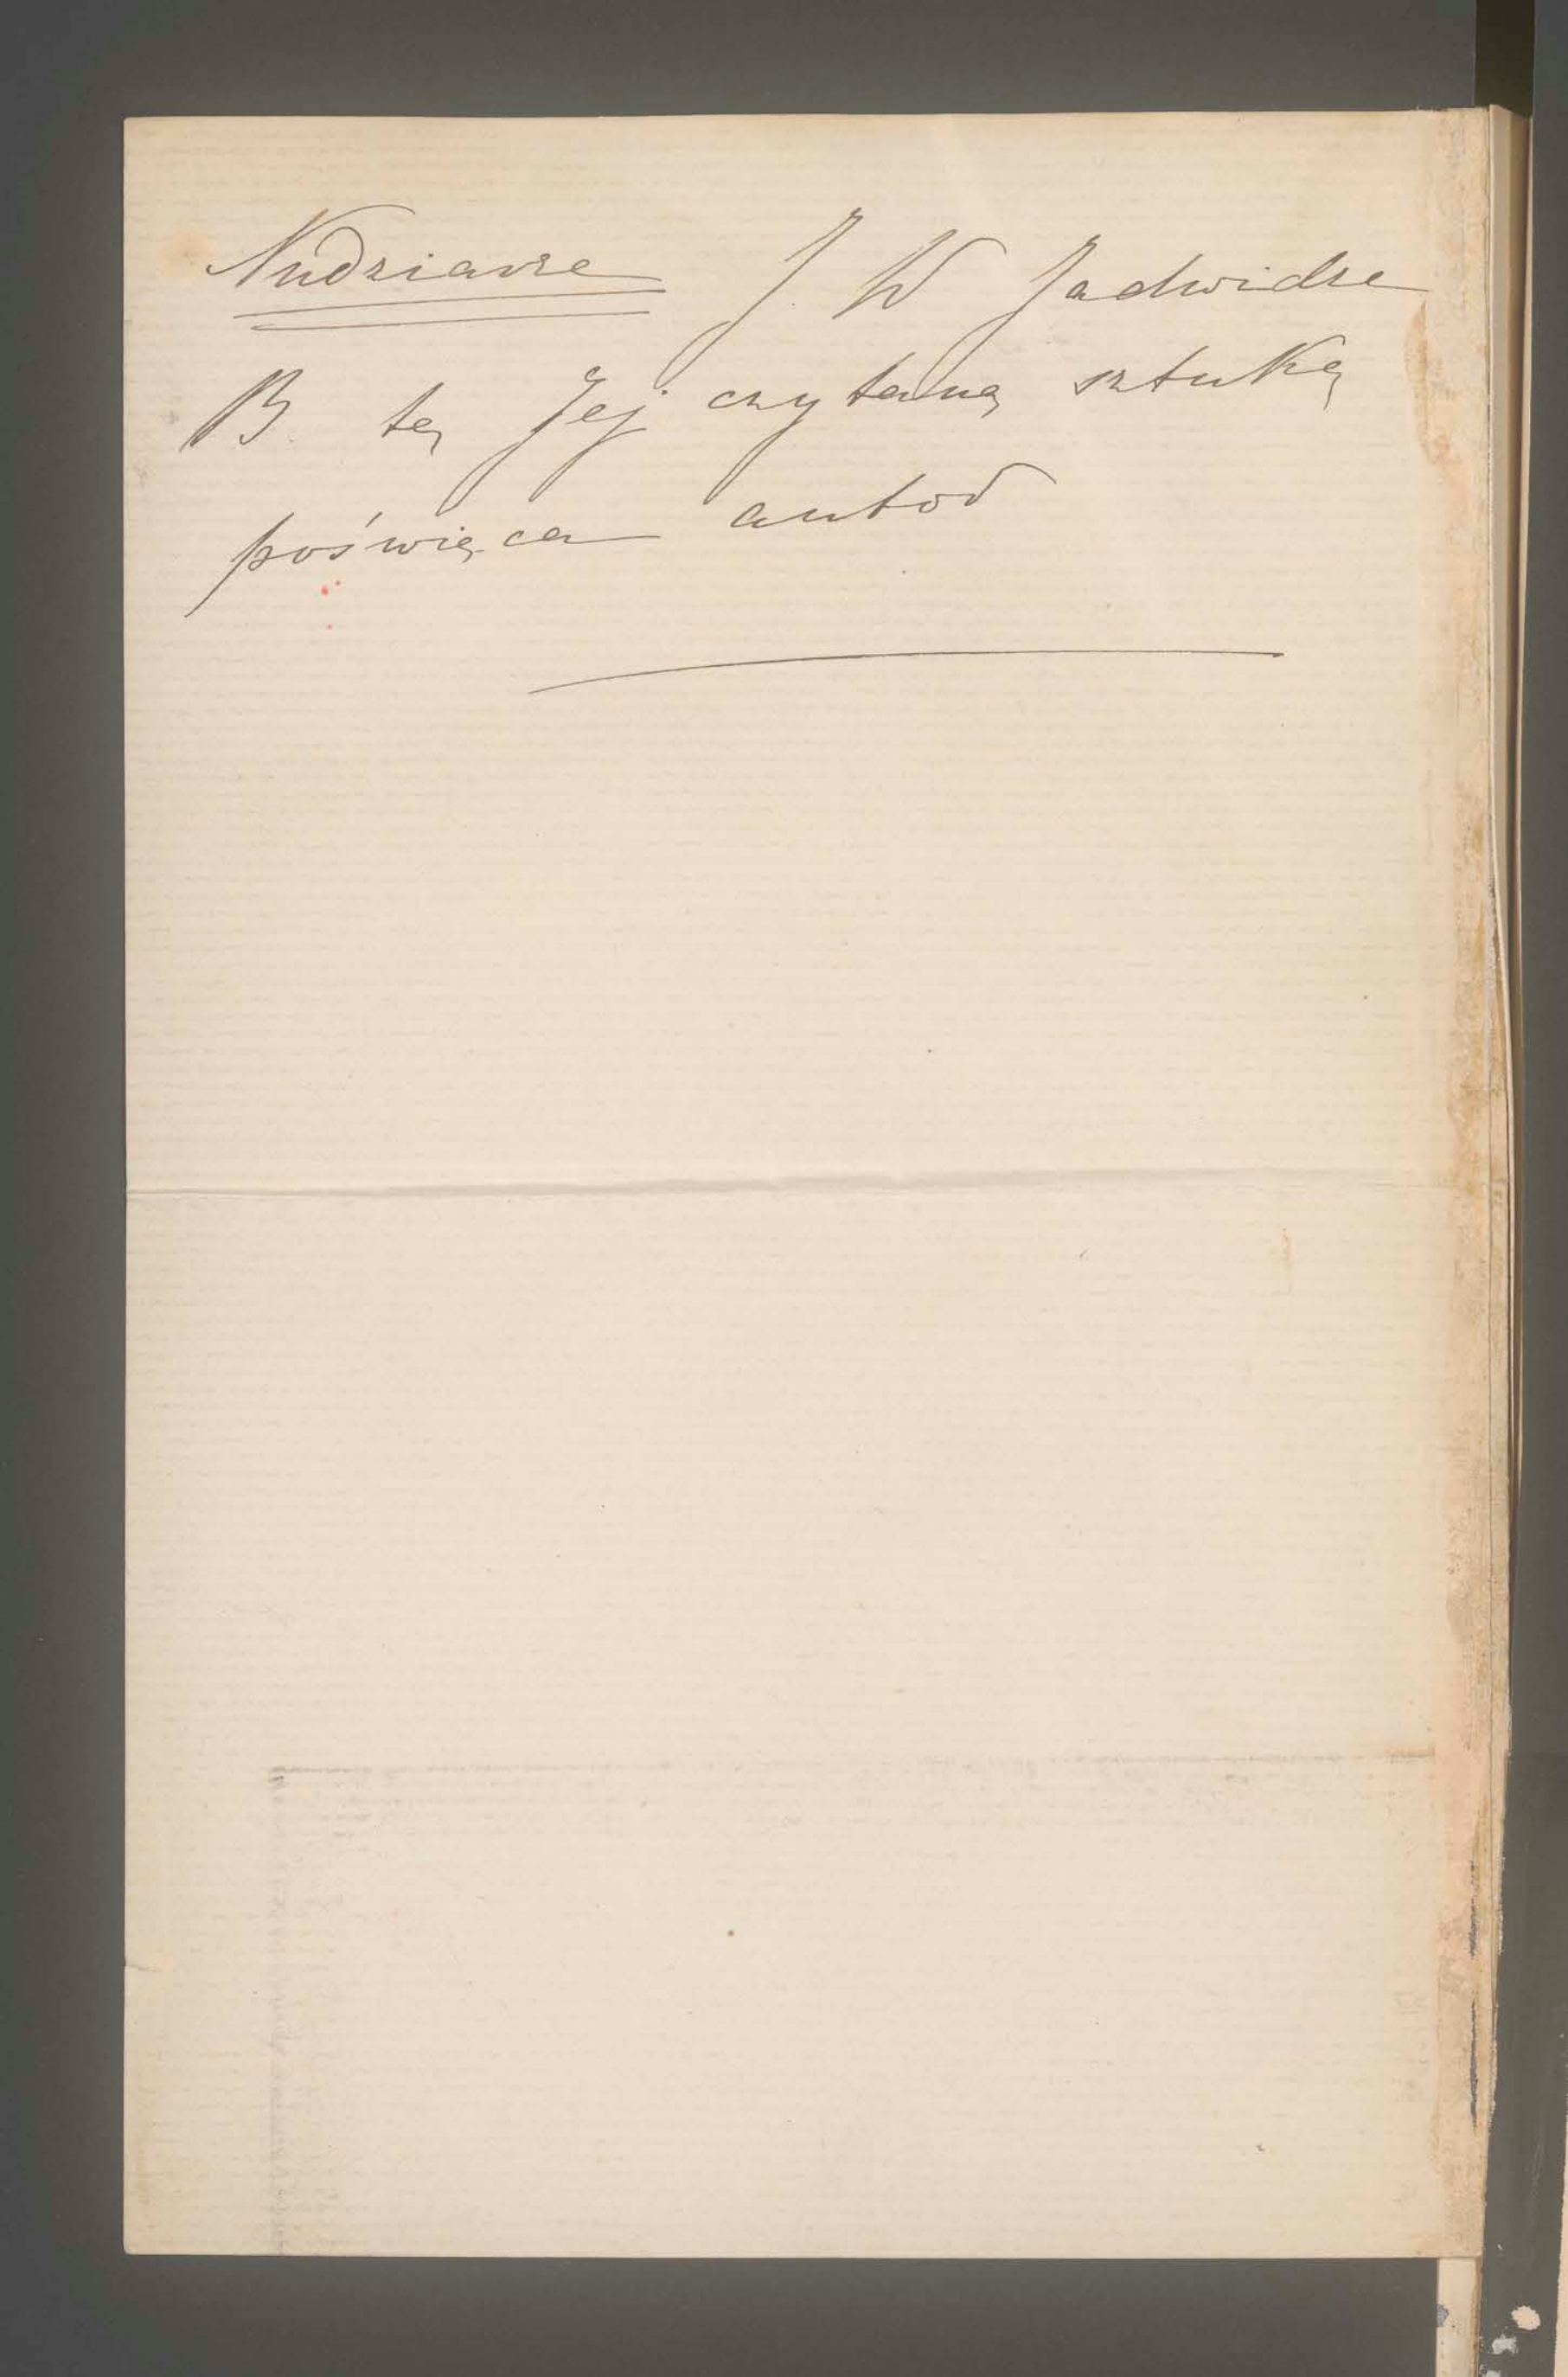 Nudziarze J. W Jadwidze
B. tę Jej czytaną sztukę
poświęca autor